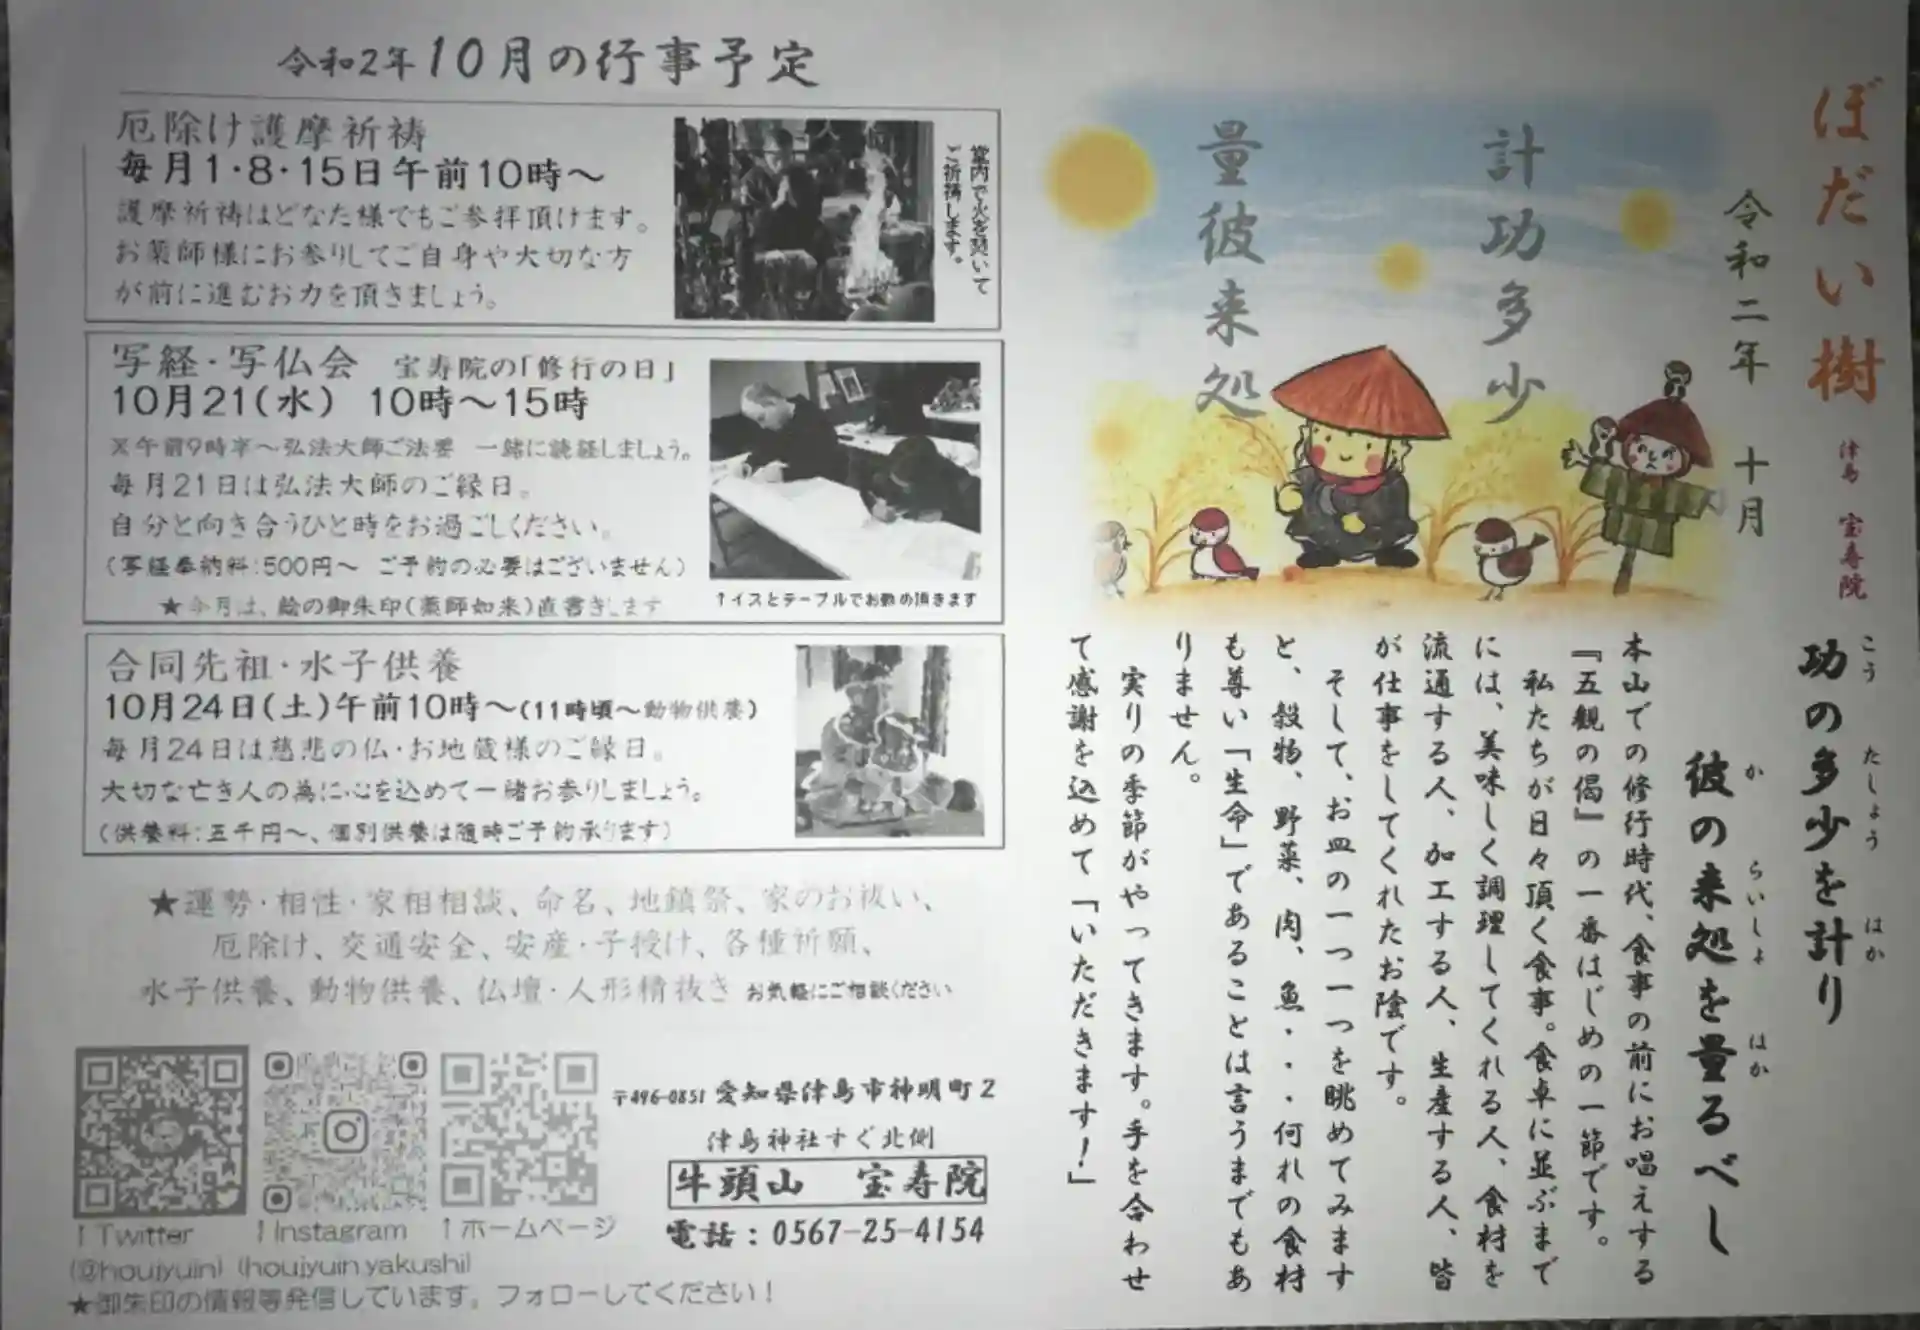 ぼだい樹
津島 宝寿院
令和二年 十月
計功多少
量彼来処
功の多少を計り
こう たしょう はか
彼の来処を量るべし
か らいしょ はか
本山での修行時代、食事の前にお唱えする
『五観の偈』の一番はじめの一節です。
私たちが日々頂く食事。食卓に並ぶまで
には、美味しく調理してくれる人、食材を
流通する人、加工する人、生産する人、皆
が仕事をしてくれたお陰です。
そして、お皿の一つ一つを眺めてみます
と、穀物、野菜、肉、魚・・・何れの食材
も尊い「生命」であることは言うまでもあ
りません。
実りの季節がやってきます。手を合わせ
て感謝を込めて「いただきます!」
令和2年10月の行事予定
厄除け護摩祈祷
毎月1・8・15日午前10時～
護摩祈祷はどなた様でもご参拝頂けます。
お薬師様にお参りしてご自身や大切な方
が前に進むお力を頂きましょう。
堂内で火を焚いて
ご祈祷します。
写経・写仏会 宝寿院の「修行の日」
10月21(水) 10時～15時
※午前9時半～弘法大師ご法要 一緒に読経しましょう。
毎月21日は弘法大師のご縁日。
自分と向き合うひと時をお過ごしください。
(写経奉納料:500円～ ご予約の必要はございません)
★今月は、絵の御朱印(薬師如来)直書きします
↑イスとテーブルでお勤め頂きます
合同先祖・水子供養
10月24日(土)午前10時～(11時頃～動物供養)
毎月24日は慈悲の仏・お地蔵様のご縁日。
大切な亡き人の為に心を込めて一緒お参りしましょう。
(供養料:五千円～、個別供養は随時ご予約承ります)
★運勢・相性・家相相談、命名、地鎮祭、家のお祓い、
厄除け、交通安全、安産・子授け、各種祈願、
水子供養、動物供養、仏壇・人形精抜き お気軽にご相談ください
〒496-0851 愛知県津島市神明町2
津島神社すぐ北側
牛頭山 宝寿院
電話:0567-25-4154
↑Twitter ↑Instagram ↑ホームページ
(@houjyuin) (houjyuin.yakushi)
★御朱印の情報等発信しています。フォローしてください!